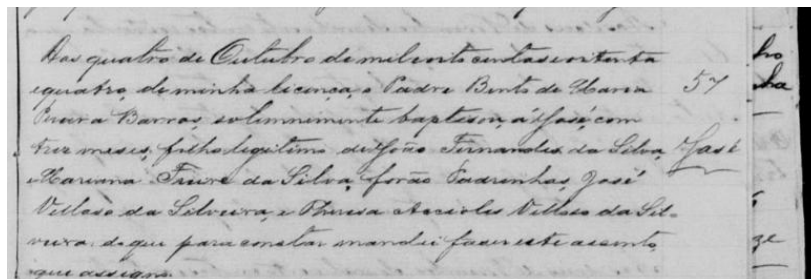 Aos quatro de Outubro de mil oito centos e oitenta
e quatro, de minha licença, o Padre Bento de Maria
Barros, solemnemente baptisou, á José, com
57
trez meses, filho legitimo de João Fernandes da Silva,
José
e Mariana Freire da Silva, forão Padrinhos, José
Villaso da Silveira, e Theresa Accioles Villaso da Sil-
veira: do que para constar mandei faser este assento,
que assigno.